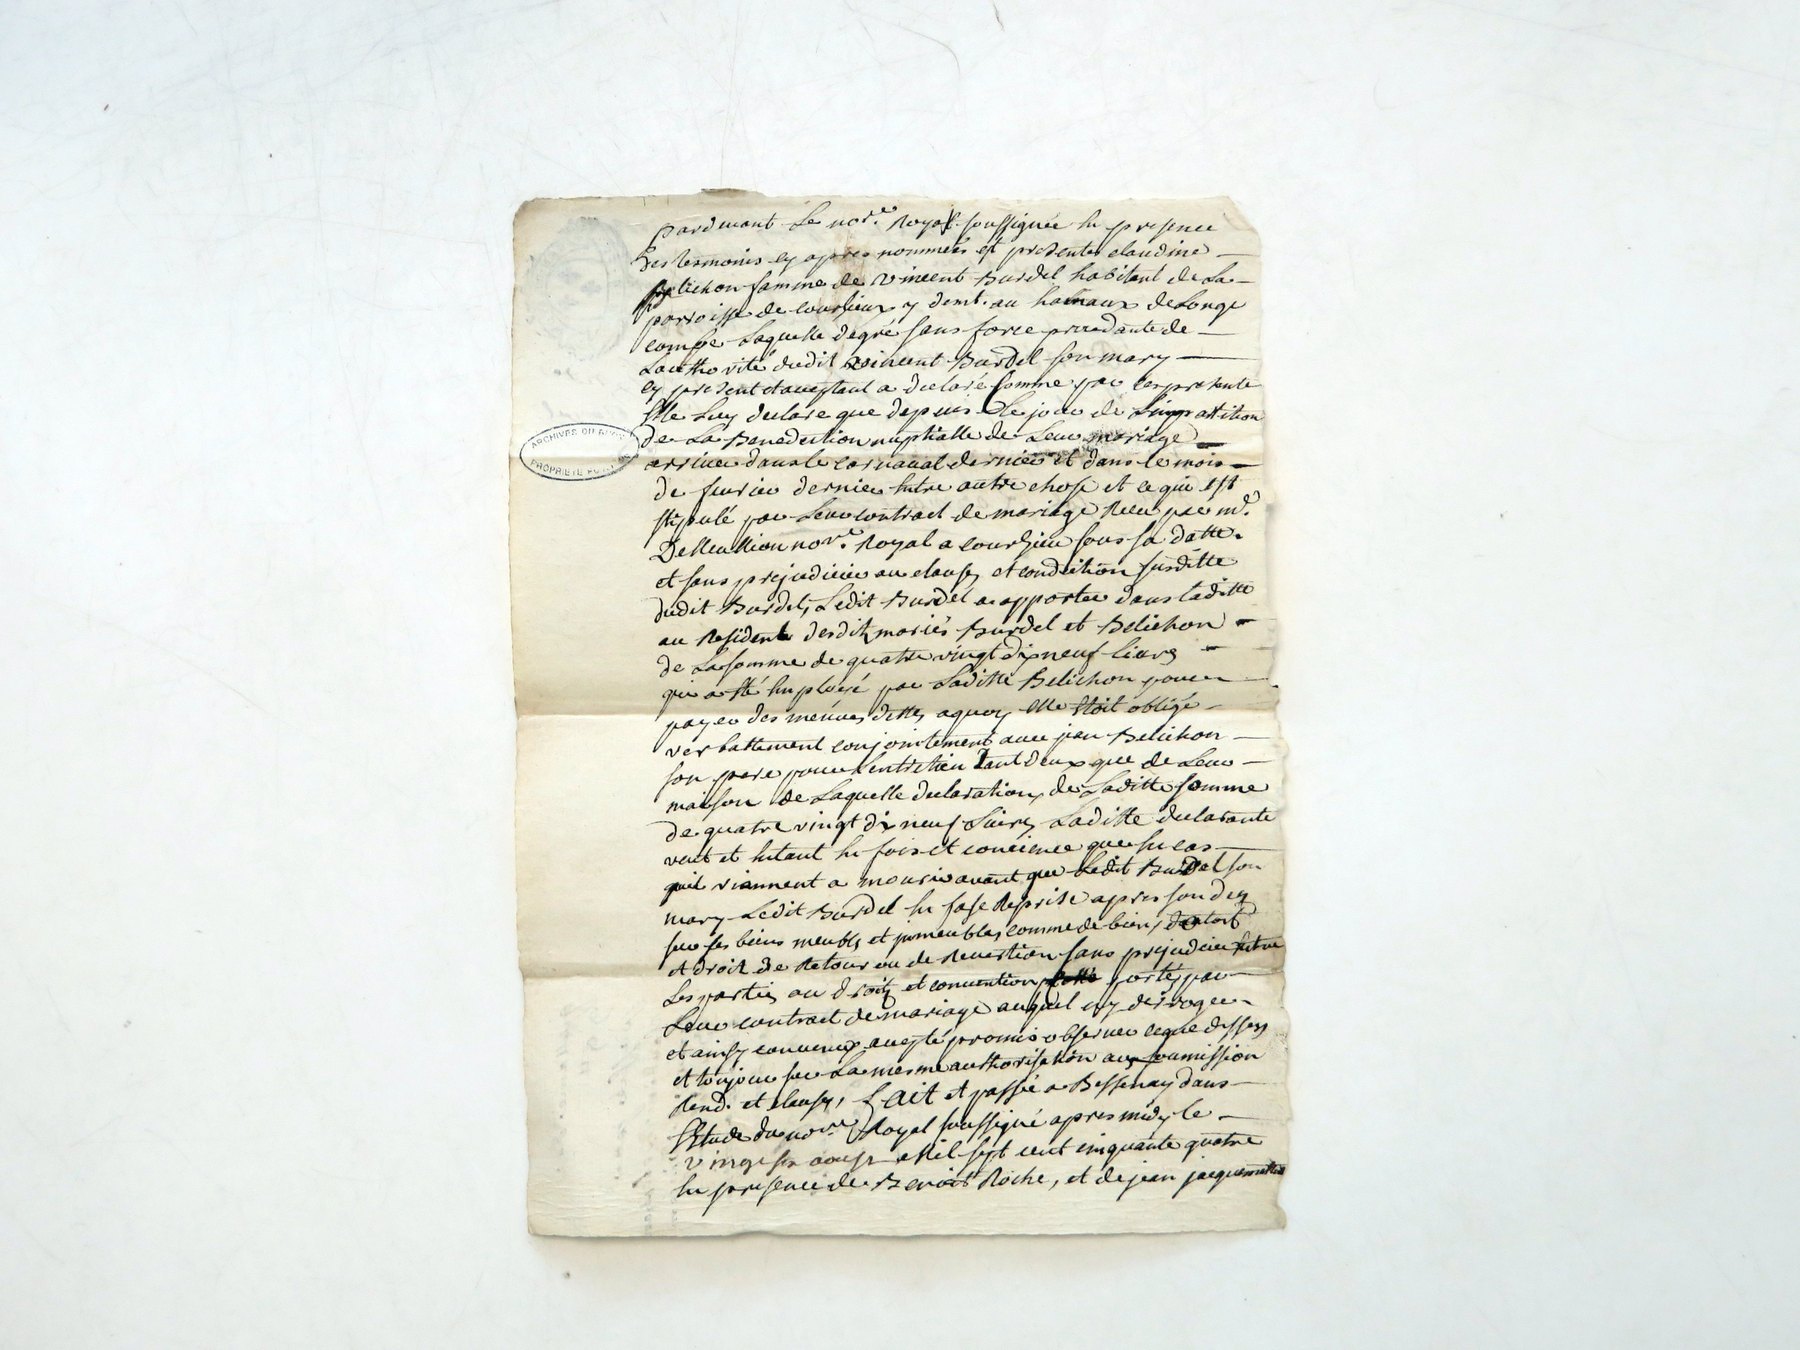 pardevant Le nore. Royal soussignée En presence
Des tesmoins cy apres nommées est presente claudine
Belichon famme de Vincent Burdel habitant de La
parroisse de Courzieux y demt. au hamaux de Longe
combe Laquelle degré sans force procedante de
Lauthorité dudit Vincent Burdel son mary
cy present et acceptant a declaré comme par ces presente
Elle Luy declare que depuis Le jour de Limpartition
de La Benediction nuptialle de Leur mariage
arrivée dans le carnaval dernier et dans le mois
de feurier dernier Entre autre chose et ce qui est
stipulé par Leur contract de mariage Receu par me.
nore. Royal a Courzieu sous sa datte.
et sans prejudicier au clauses et condition susditte
dudit Burdel, Ledit Burdel a apporter dans laditte
au Residence desdits mariés Burdel et Belichon
de La somme de quatre vingt dix neuf livres
qui a Esté Employé par Laditte Belichon pour
payer des menues dettes aquoy elle Etoit obligé
verballement conjointement avec jean Belichon
son pere pour Lentretien Tant deux que de Leur
maison de Laquelle declaration de Laditte somme
de quatre vingt dix neuf Livres Laditte declarante
veut et Entant En fois et concience que En cas
quil viennent a mourir avant que Ledit Burdel son
mary Ledit Burdel En fase Reprise apres son des
sur ses biens meubles et jmmeubles comme de biens
et droit de Retour ou de Revertion sans prejudicier Entre
Les parties au droits et convention portés par
Leur contract de mariage auquel ny déroger
et ainsy convenu accepté promis observer ceque dessus
et toujour sur La mesme authorisation avec soumission
Rend. et clauses, Fait et passé a Bessenay dans
Létude du nore. Royal soussigné apres midy le
vingt six mil sept cent cinquante quatre
En presence de Benoist Roche, et de jean
ARCHIVES DU
PROPRIÉTÉ